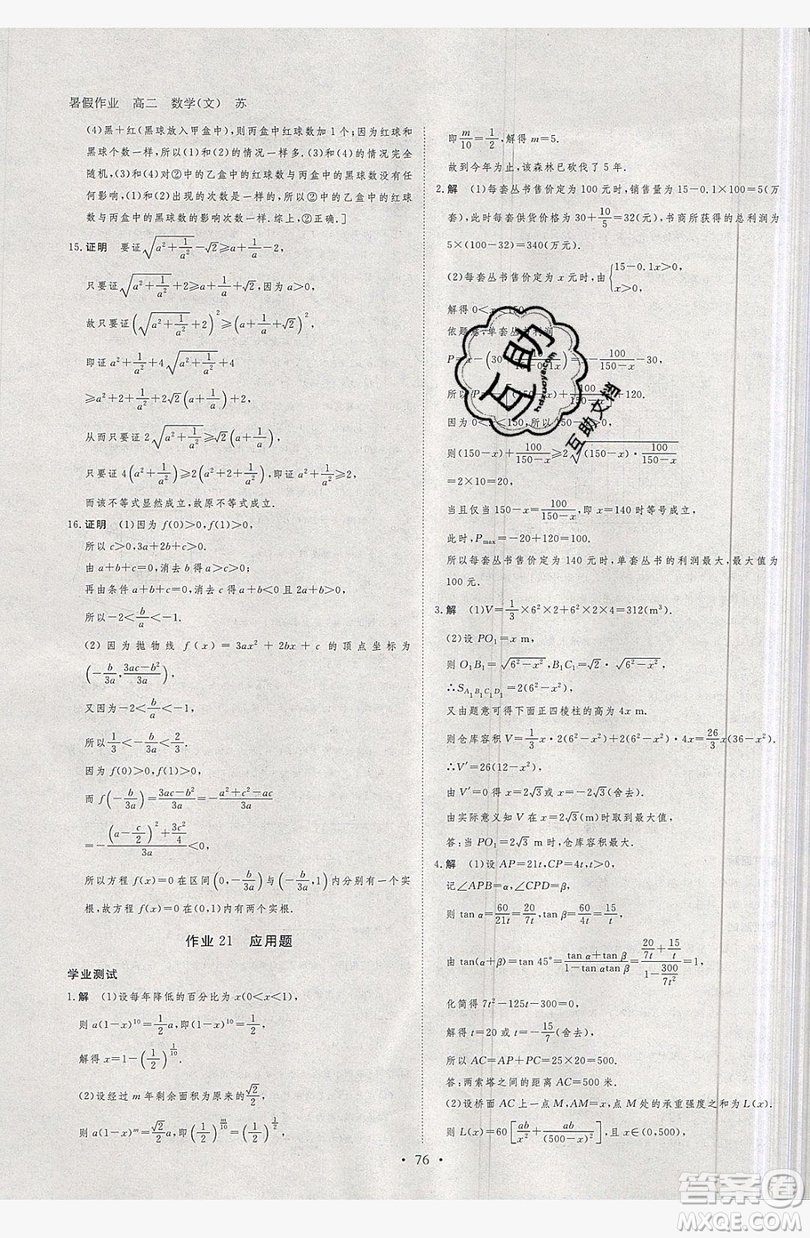 暑假作业 高二 数学(文) 苏
(4)黑+红(黑球放入甲盒中),则丙盒中红球数加1个;因为红球和
黑球个数一样,所以(1)和(2)的情况一样多.(3)和(4)的情况完全
随机,(3)和(4)对②中的乙盒中的红球数与丙盒中的黑球数没有
任何影响.因为(1)和(2)出现的次数是一样的,所以②中的乙盒中的红球
数与丙盒中的黑球数的影响次数一样.综上,②中的]
15.证明 要证√(a²+1/a²)-√2≥a+1/a-2,
只要证√(a²+1/a²)+2≥a+1/a+√2,因为a>0,
故只要证(√(a²+1/a²)+2)²≥(a+1/a+√2)²,
即证a²+1/a²+4√(a²+1/a²)+4
≥a²+1/a²+2+2√2(a+1/a)+2,
从而只要证2√(a²+1/a²)≥√2(a+1/a),
只要证4(a²+1/a²)≥2(a²+2+1/a²),即a²+1/a²≥2,
而该不等式显然成立,故原不等式成立.
16.证明 (1)因为f(0)>0,f(1)>0,
所以c>0,3a+2b+c>0,
由a+b+c=0,消去b得a>c>0;
再由条件a+b+c=0,消去c得a+b<0,2a+b>0,
所以-2<b/a<-1.
(2)因为抛物线f(x)=3ax²+2bx+c的顶点坐标为
(-b/3a,(3ac-b²)/3a),
又因为-2<b/a<-1,
所以1/3<-b/3a<2/3.
因为f(0)>0,f(1)>0,
而f(-b/3a)=(3ac-b²)/3a=-(a²+c²-ac)/3a
=-((a-c/2)²+3c²/4)/3a<0,
所以方程f(x)=0在区间(0,-b/3a)与(-b/3a,1)内分别有一个实
根,故方程f(x)=0在(0,1)内有两个实根.
作业21 应用题
学业测试
1.解 (1)设每年降低的百分比为x(0<x<1),
则a(1-x)^10=1/2a,即(1-x)^10=1/2,
解得x=1-(1/2)^(1/10).
(2)设经过m年剩余面积为原来的√2/2,
则a(1-x)^m=√2/2a,即(1/2)^(m/10)=(1/2)^(1/2),
即m/10=1/2,解得m=5.
故到今年为止,该森林已砍伐了5年.
2.解 (1)每套丛书售价定为100元时,销售量为15-0.1×100=5(万
套),此时每套供货价格为30+10/5=32(元),书商所获得的总利润为
5×(100-32)=340(万元).
(2)每套丛书售价定为x元时,由{15-0.1x>0,
解得0<x<150.
依题意,单套丛书利润
P=x-(30+ =x-100/(150-x)-30,
所以P=-[(150-x)+100/(150-x)]+120.
因为0<x<150,所以150-x>0,
则(150-x)+100/(150-x)≥2√((150-x)·100/(150-x))
=2×10=20,
当且仅当150-x=100/(150-x),即x=140时等号成立,
此时,Pmax=-20+120=100.
所以每套丛书售价定为140元时,单套丛书的利润最大,最大值为
100元.
3.解 (1)V=1/3×6²×2+6²×2×4=312(m³).
(2)设PO₁=x m,
则O₁B₁=√(6²-x²),B₁C₁=√2·√(6²-x²),
∴S_A₁B₁C₁D₁=2(6²-x²),
又由题意可得下面正四棱柱的高为4x m.
则仓库容积V=1/3x·2(6²-x²)+2(6²-x²)·4x=26/3x(36-x²).
∴V′=26(12-x²),
由V′=0得x=2√3或x=-2√3(舍去).
由实际意义知V在x=2√3(m)时取到最大值,
答:当PO₁=2√3 m时,仓库容积最大.
4.解 (1)设AP=21t,CP=4t,t>0,
记∠APB=α,∠CPD=β,
则tan α=60/21t=20/7t,tan β=60/4t=15/t,
由tan(α+β)=tan 45°=(tan α+tan β)/(1-tan αtan β)=(20/7t+15/t)/(1-300/7t²)=1,
化简得7t²-125t-300=0,
解得t=20或t=-15/7(舍去),
所以AC=AP+PC=25×20=500.
答:两索塔之间的距离AC=500米.
(2)设桥面上一点M,AM=x,点M处的承重强度之和为L(x).
则L(x)=60[ab/x²+ab/(500-x)²],且x∈(0,500),
• 76 •
互助
hdzuoye.com
互助文档
答案卷
MXQE.COM